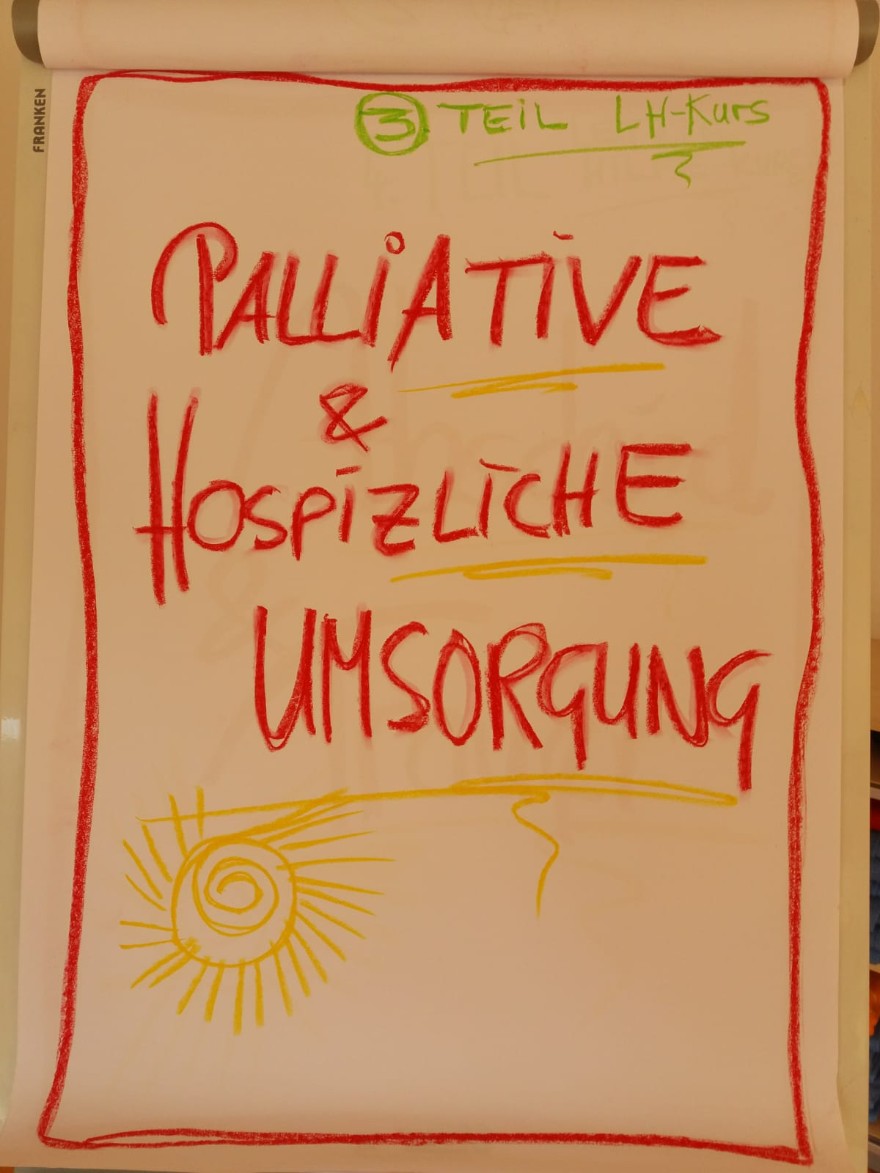 FRANKEN
③ TEIL LH-Kurs
PALLiATIVE
&
HOSPIZLICHE
UMSORGUNG